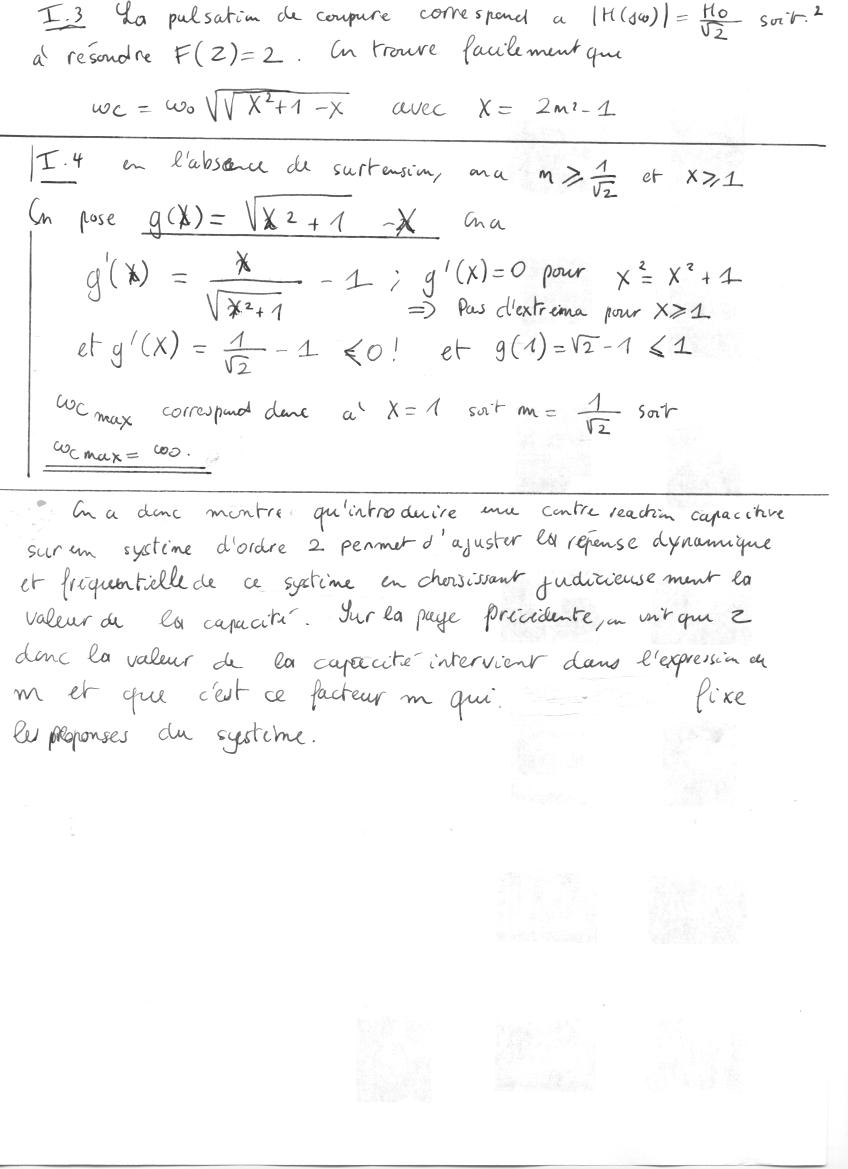 I.3 La pulsation de coupure correspond a |H(jω)| = H0/√2 soit 2
à résoudre F(Z)=2. On trouve facilement que
ωc = ω0 √(√(X²+1) - X) avec X = 2m² - 1
I.4 en l'absence de surtension, on a m ⩾ 1/√2 et X⩾1
On pose g(X) = √(X²+1) - X On a
g'(X) = X/√(X²+1) - 1 ; g'(X)=0 pour X² = X² + 1
=> Pas d'extrema pour X⩾1
et g'(X) = 1/√2 - 1 ⩽0! et g(1)=√2-1 ⩽ 1
ωc max correspond donc a' X = 1 soit m = 1/√2 soit
ωc max = ω0.
On a donc montre qu'introduire une contre reaction capacitive
sur un système d'ordre 2 permet d'ajuster la réponse dynamique
et fréquentielle de ce système en choisissant judicieusement la
valeur de la capacité. Sur la page précédente, on voit que Z
donc la valeur de la capacité intervient dans l'expression de
m et que c'est ce facteur m qui fixe
les réponses du système.